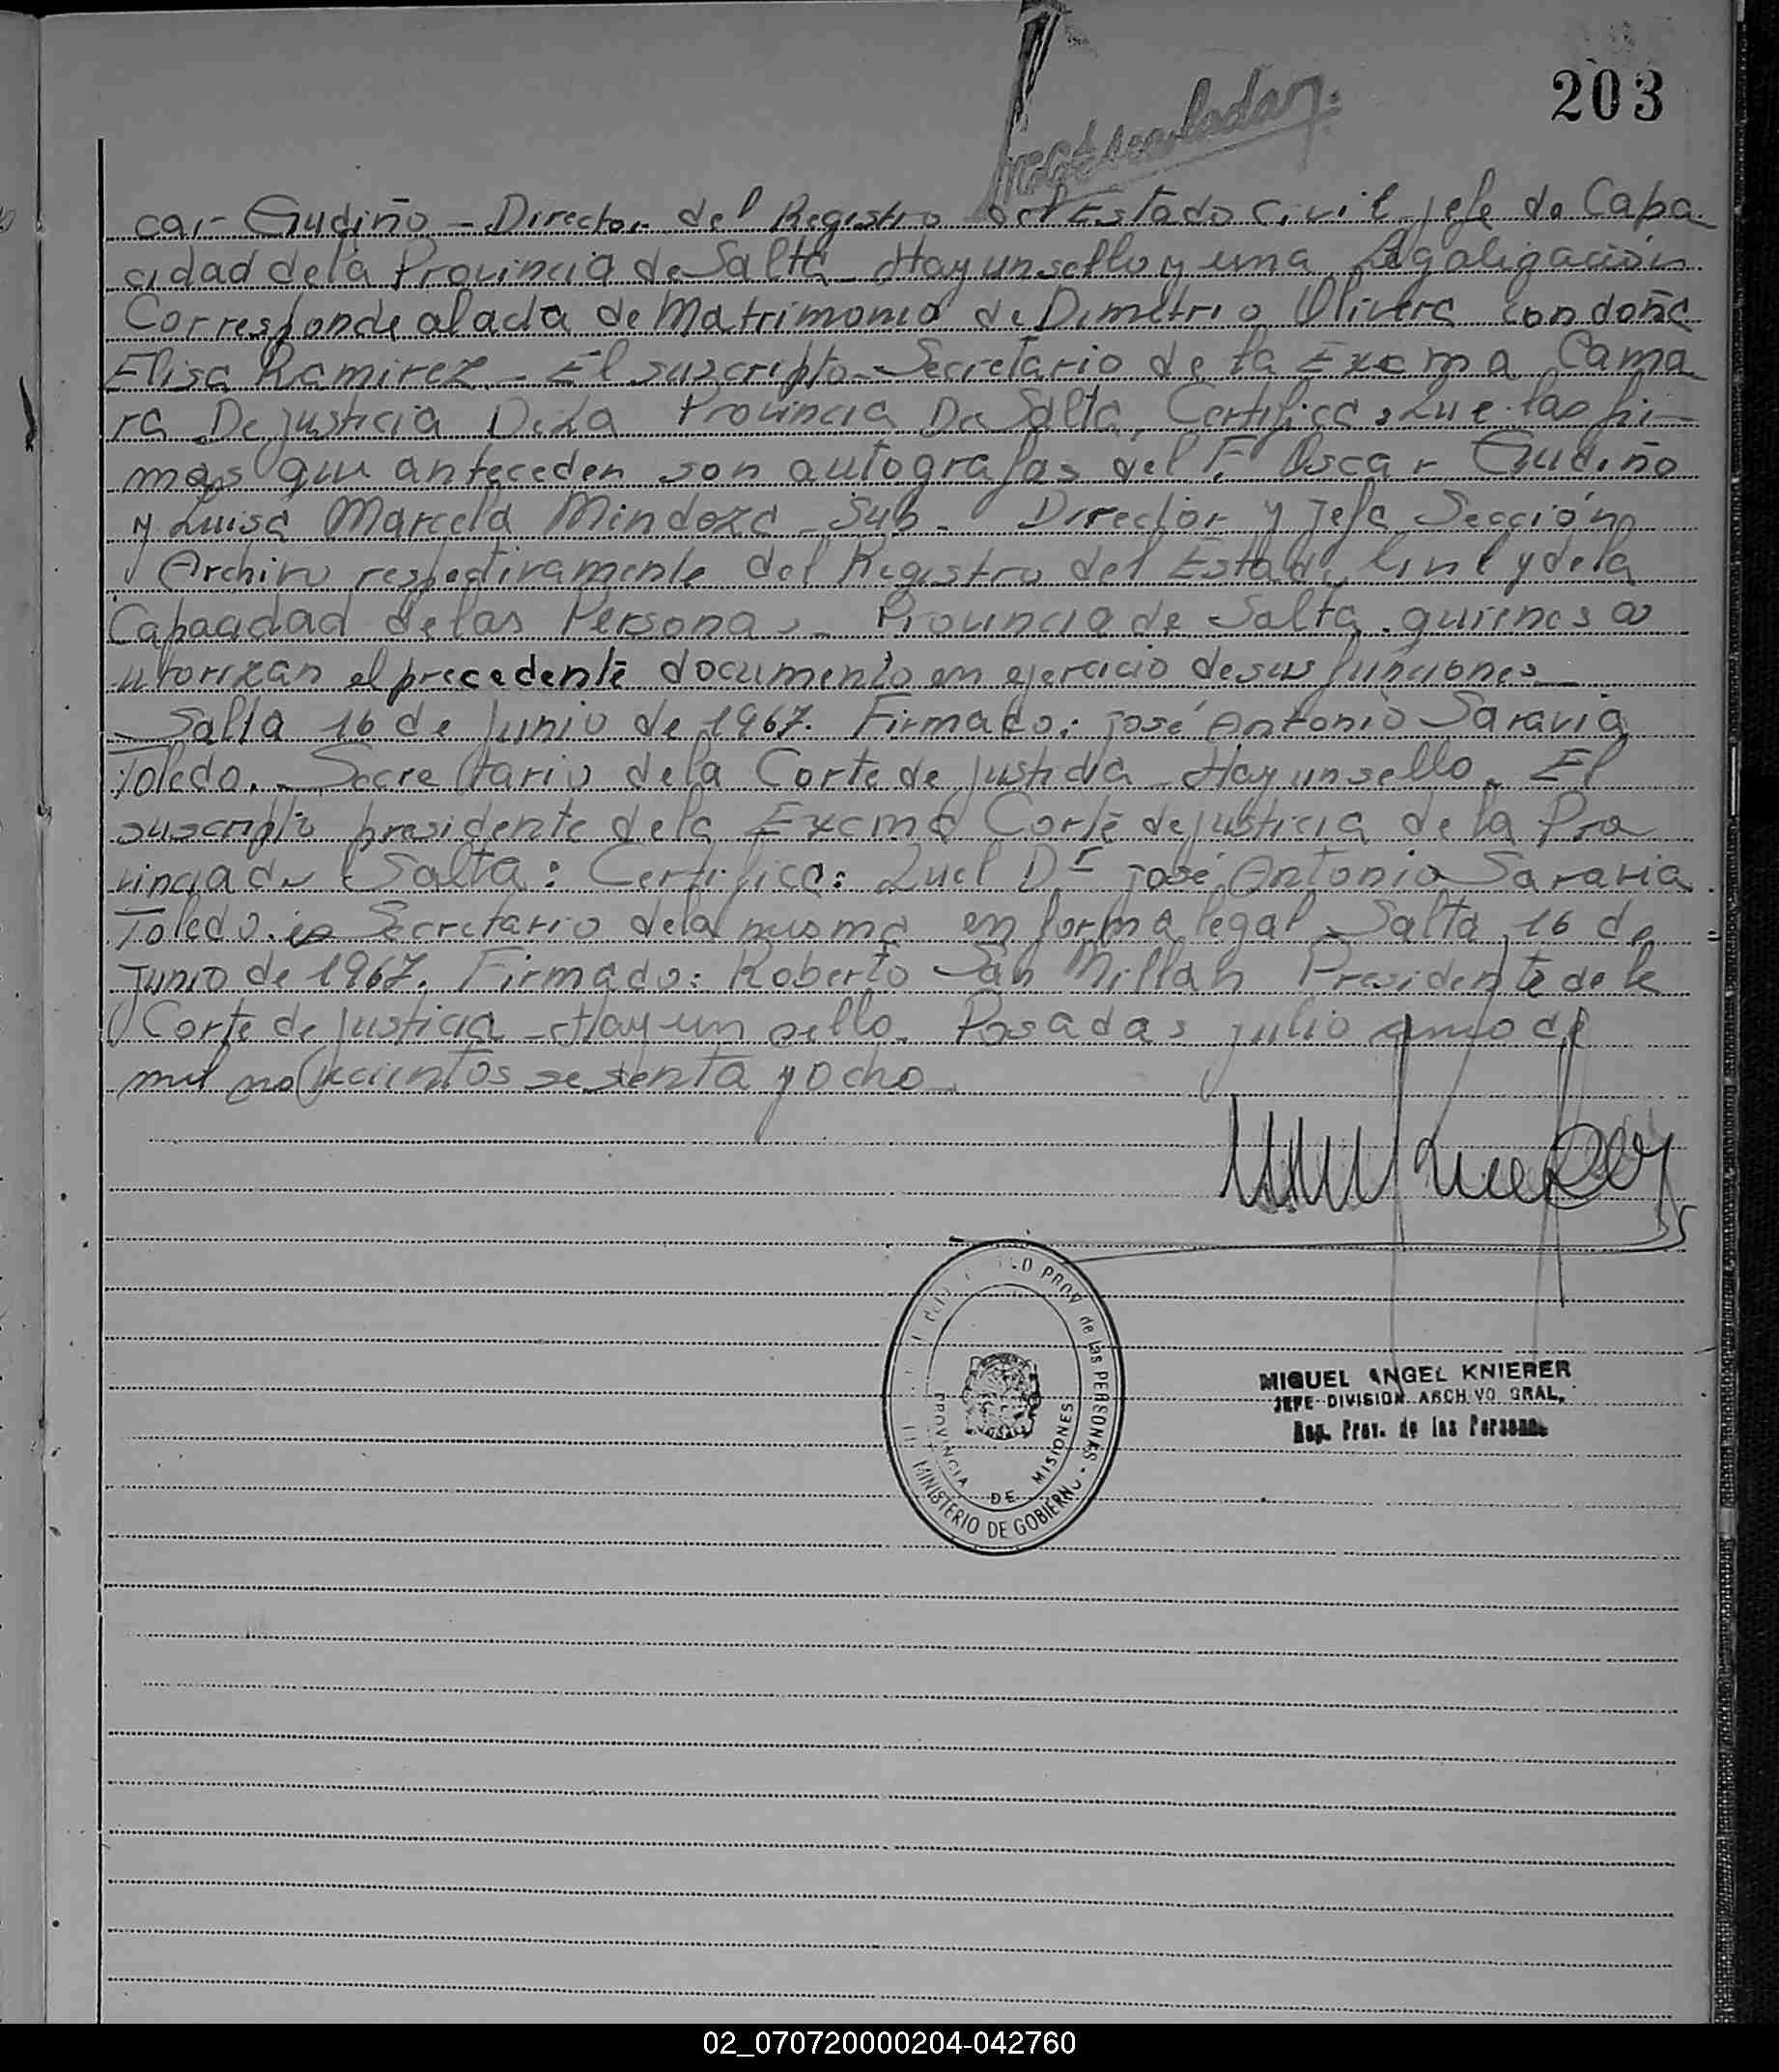 203
car Gudiño - Director del Registro del Estado Civil jefe de Capa-
cidad dela Provincia de Salta - Hay un sello y una Legalización
Corresponde al acta de Matrimonio de Dimetrio Olivera con doña
Elisa Ramirez - El suscripto - Secretario de la Excma Cama
ra De justicia De La Provincia De Salta, Certifica: Que las fir-
mas que anteceden son autografas del Oscar Gudiño
y Luisa Marcela Mindoza - Sub - Director y jefa Sección
Archivo respectivamente del Registro del Estado Civil y de la
Capacidad de las Personas - Provincia de Salta. quienes a
utorizan el precedente documento en ejercicio de sus funciones
- Salta 16 de Junio de 1967. Firmado: josé Antonio Saravia
Toledo. - Secretario dela Corte de justicia - Hay un sello. El
suscripto presidente dela Excma Corte de justicia de la Pro
vincia de Salta: Certifica: Quel Dr josé Antonio Saravia
Toledo. es Secretario dela misma en forma legal - Salta, 16 de
junio de 1967. Firmado: Roberto San Millan Presidente de la
Corte de justicia - Hay un sello. Posadas julio cinco de
mil novecientos sesenta y ocho -
PROV de las PERSONAS - MINISTERIO DE GOBIERNO
PROVINCIA DE MISIONES
MIGUEL ANGEL KNIERER
JEFE DIVISION ARCHIVO GRAL.
Reg. Prov. de las Personas
02_070720000204-042760